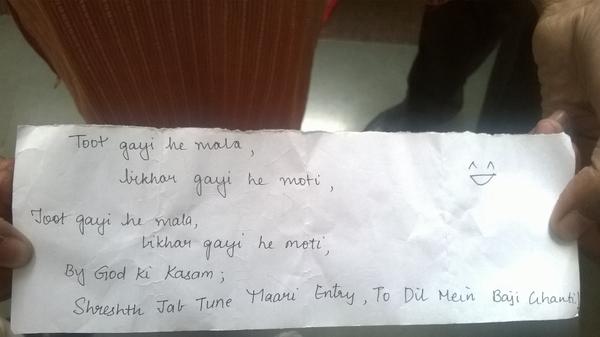 Toot gayi he mala,
bikhar gayi he moti,
Toot gayi he mala,
bikhar gayi he moti,
By God ki Kasam;
Shreshth Jab Tune Maari Entry, To Dil Mein Baji Ghanti!